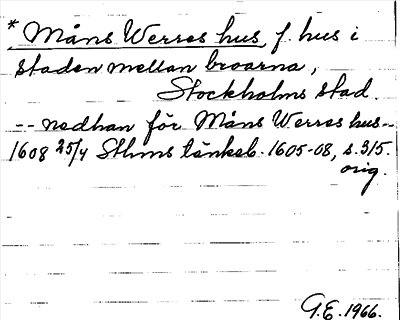 * Måns Werres hus, f. hus i
staden mellan broarna,
Stockholms stad.
-- nedhan för Måns Werres hus --
1608 25/4 Sthms tänkeb. 1605-08, s. 315.
orig.
G.E. 1966.